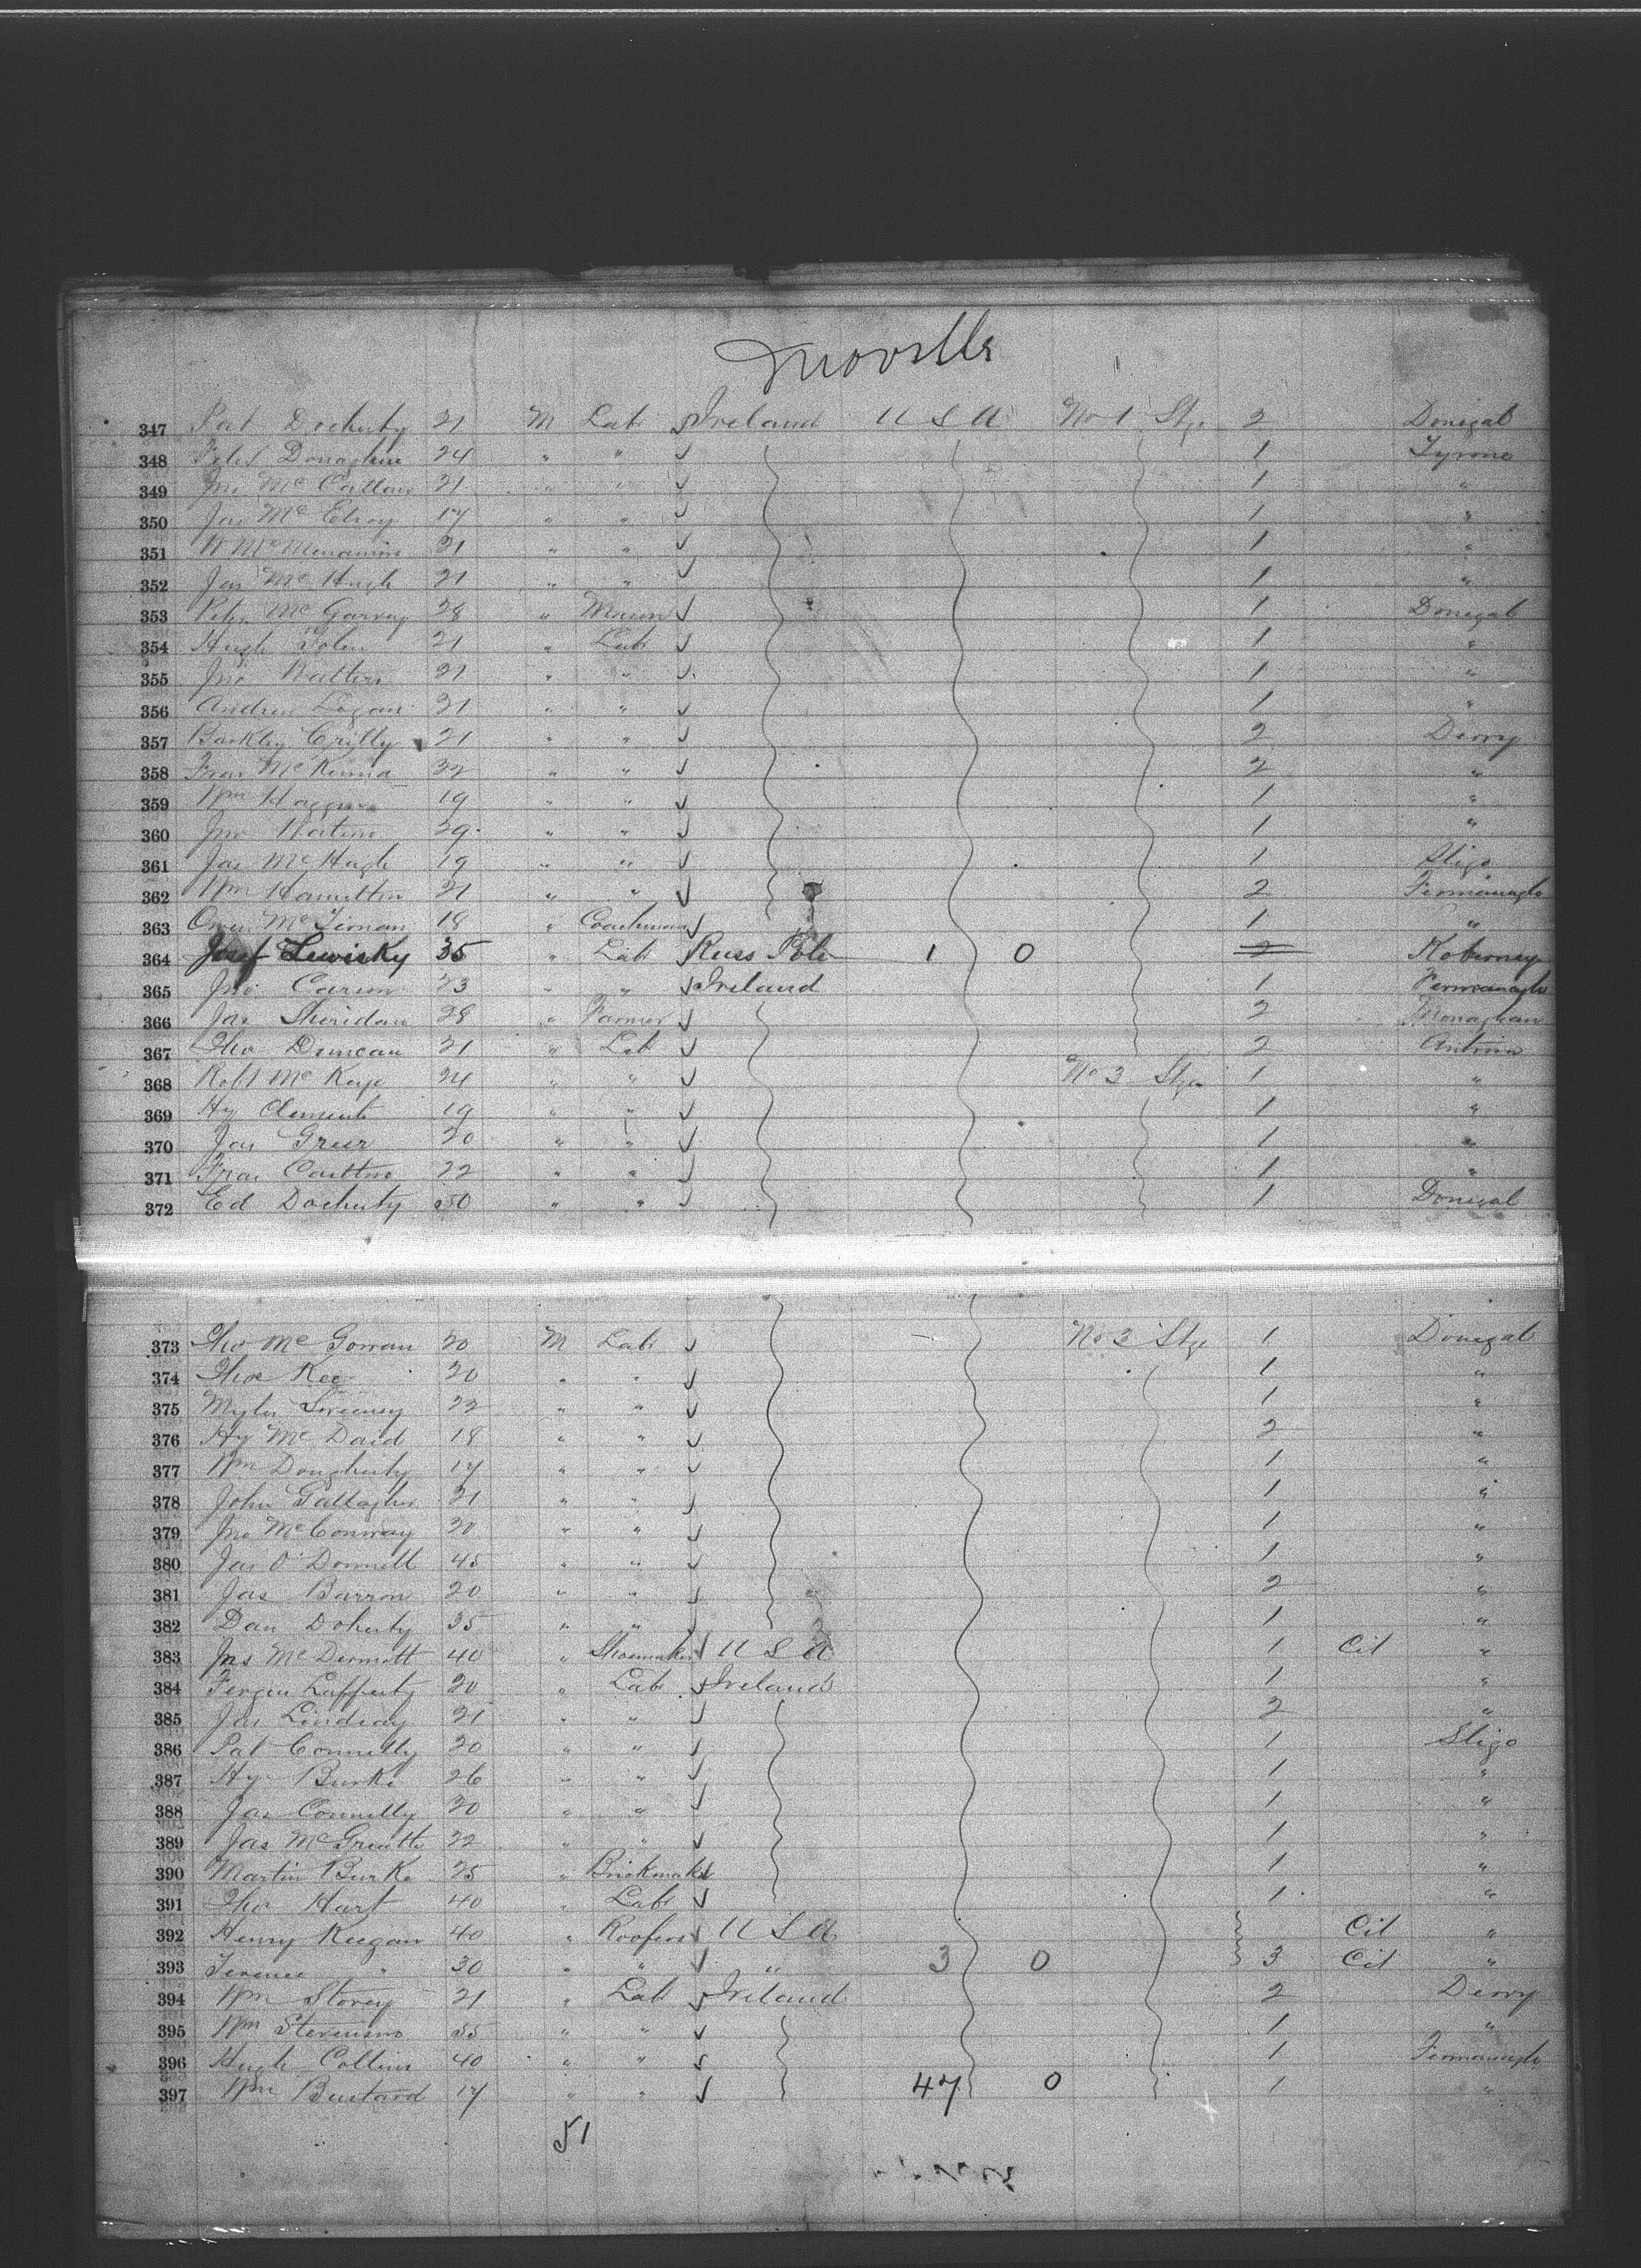 Moville
347 Pat Docherty 21 M Lab Ireland U S A No 1 Stge 2 Donegal
348 Donaghue 24 " " 1 Tyrone
349 Jno Mc Callow 21 " " 1 "
350 Jas Mc Elroy 17 " " 1 "
351 W McMenamin 21 " " 1 "
352 Jas Mc Hugh 21 " " 1 "
353 Mc Garvey 28 " Mason 1 Donegal
354 Hugh 21 " Lab 1 "
355 Jno Watters 21 " " 1 "
356 Andrew Logan 21 " " 1 "
357 Crilly 21 " " 2 Derry
358 Fras Mc Kenna 32 " " 2 "
359 Wm 19 " " 1 "
360 Jno 29 " " 1 "
361 Jas Mc Hugh 19 " " 1 Sligo
362 Wm Hamilton 21 " " 2 Fermanagh
363 Owen Mc Tiernan 18 " Coachman 1 "
364 Josef Lewisky 35 " Lab Russ Pole 1 0 2
365 Jno Carson 23 " " Ireland 1 Fermanagh
366 Jas Sheridan 28 " Farmer 2 Monaghan
367 Tho Duncan 21 " Lab 2 Antrim
368 Robt Mc Kaye 24 " " No 3 Stge 1 "
369 Hy Clements 19 " " 1 "
370 Jas Greer 20 " " 1 "
371 Fras Carlton 22 " " 1 "
372 Ed Docherty 50 " " 1 Donegal
373 Tho Mc Gowan 20 M Lab No 3 Stge 1 Donegal
374 Thos Kee 20 " " 1 "
375 Myles Sweeney 22 " " 1 "
376 Hy Mc Daid 18 " " 2 "
377 Wm Dougherty 17 " " 1 "
378 John Gallagher 21 " " 1 "
379 Jno McConway 20 " " 1 "
380 Jas O'Donnell 45 " " 1 "
381 Jas Barron 20 " " 2 "
382 Dan Doherty 35 " " 1 "
383 Jas McDermott 40 " Shoemaker U S A 1 Cit "
384 Lafferty 20 " Lab Ireland 1 "
385 Jas Lindsay 21 " " 2 "
386 Pat Connelly 20 " " 1 Sligo
387 Hy Burke 26 " " 1 "
388 Jas Connelly 20 " " 1 "
389 Jas 22 " " 1 "
390 Martin Burke 25 " Brickmaker 1 "
391 Tho Hart 40 " Lab 1 "
392 Henry Keegan 40 " Roofers U S A Cit "
393 Terence " 30 " " " 3 0 3 Cit "
394 Wm Storey 21 " Lab Ireland 2 Derry
395 Wm Stevenson 35 " " 1 "
396 Hugh Collins 40 " " 1 Fermanagh
397 Wm Bustard 17 " " 47 0 1 "
51